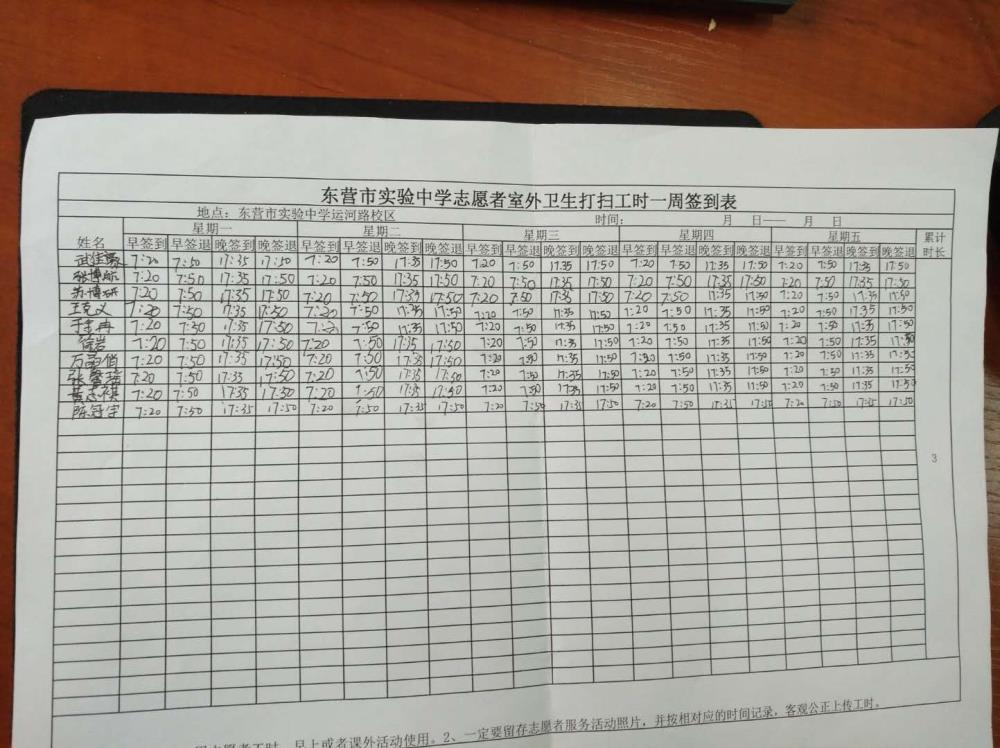 东营市实验中学志愿者室外卫生打扫工时一周签到表
地点：东营市实验中学运河路校区 时间： 月 日—— 月 日
姓名 星期一 星期二 星期三 星期四 星期五 累计时长
早签到 早签退 晚签到 晚签退 早签到 早签退 晚签到 晚签退 早签到 早签退 晚签到 晚签退 早签到 早签退 晚签到 晚签退 早签到 早签退 晚签到 晚签退
7:20 7:50 17:35 17:50 7:20 7:50 17:35 17:50 7:20 7:50 17:35 17:50 7:20 7:50 17:35 17:50 7:20 7:50 17:35 17:50
张博 7:20 7:50 17:35 17:50 7:20 7:50 17:35 17:50 7:20 7:50 17:35 17:50 7:20 7:50 17:35 17:50 7:20 7:50 17:35 17:50
苏博研 7:20 7:50 17:35 17:50 7:20 7:50 17:35 17:50 7:20 7:50 17:35 17:50 7:20 7:50 17:35 17:50 7:20 7:50 17:35 17:50
王克义 7:20 7:50 17:35 17:50 7:20 7:50 17:35 17:50 7:20 7:50 17:35 17:50 7:20 7:50 17:35 17:50 7:20 7:50 17:35 17:50
于 冉 7:20 7:50 17:35 17:50 7:20 7:50 17:35 17:50 7:20 7:50 17:35 17:50 7:20 7:50 17:35 17:50 7:20 7:50 17:35 17:50
徐岩 7:20 7:50 17:35 17:50 7:20 7:50 17:35 17:50 7:20 7:50 17:35 17:50 7:20 7:50 17:35 17:50 7:20 7:50 17:35 17:50
万 俏 7:20 7:50 17:35 17:50 7:20 7:50 17:35 17:50 7:20 7:50 17:35 17:50 7:20 7:50 17:35 17:50 7:20 7:50 17:35 17:50
张馨瑶 7:20 7:50 17:35 17:50 7:20 7:50 17:35 17:50 7:20 7:50 17:35 17:50 7:20 7:50 17:35 17:50 7:20 7:50 17:35 17:50
黄志祺 7:20 7:50 17:35 17:50 7:20 7:50 17:35 17:50 7:20 7:50 17:35 17:50 7:20 7:50 17:35 17:50 7:20 7:50 17:35 17:50
陈冠宇 7:20 7:50 17:35 17:50 7:20 7:50 17:35 17:50 7:20 7:50 17:35 17:50 7:20 7:50 17:35 17:50 7:20 7:50 17:35 17:50
3
志愿者工时，早上或者课外活动使用。2、一定要留存志愿者服务活动照片，并按相对应的时间记录，客观公正上传工时。